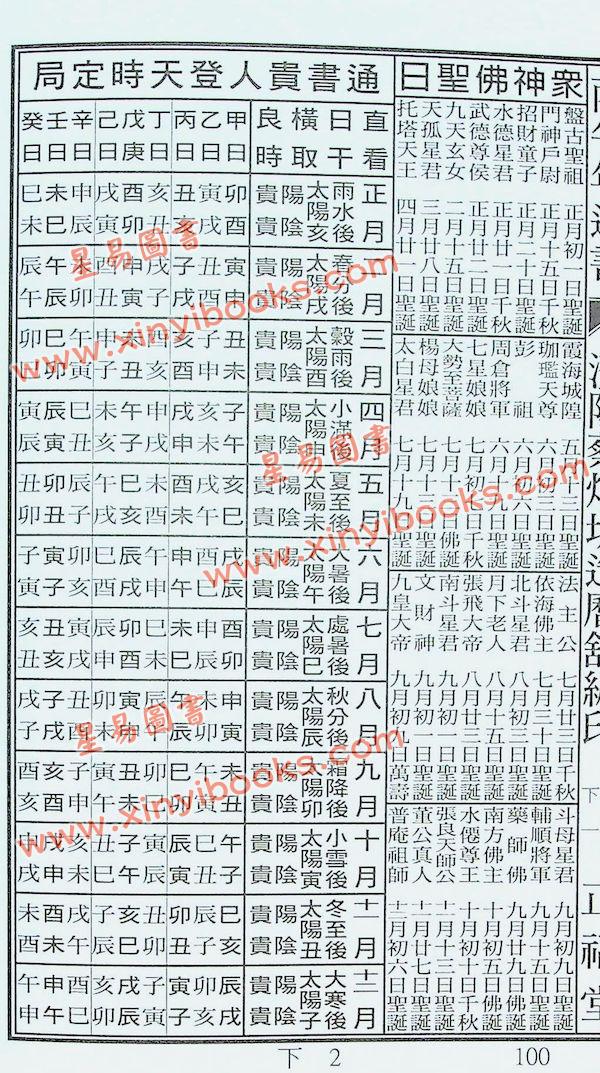 衆神佛聖日
盤古聖祖 正月初一日聖誕
門神戶尉 正月十五日千秋
招財童子
水德星君
武德尊侯
九天玄女 二月十五日聖誕
天孤星君
托塔天王 四月初一日聖誕
霞海城隍 五月十三日聖誕
珈瓏天尊
彭祖 六月初六日聖誕
周倉將軍
七星娘娘 七月初七日千秋
大勢至菩薩 七月十三日佛誕
楊母娘娘
太白星君 七月十九日聖誕
法主公 七月廿三日千秋
依海佛主
北斗星君 八月初三日聖誕
月下老人 八月十五日聖誕
張飛大帝
南斗星君
文財神
九皇大帝 九月初九日萬壽
斗母星君 九月初九日聖誕
輔順將軍
藥師佛
南方佛主
水僊尊王 十月初十日千秋
張良天師公
董公真人
普庵祖師
通書貴人登天時定局
直看 日干 橫取 良時 甲日 乙日 丙日 丁日 戊庚 己日 辛日 壬日 癸日
正月 雨水後太陽亥
陽貴 卯寅丑亥酉戌申未巳
陰貴 酉戌亥丑卯寅辰巳未
二月 春分後太陽戌
陽貴 寅丑子戌申酉未午辰
陰貴 申酉戌子寅丑卯辰午
三月 穀雨後太陽酉
陽貴 丑子亥酉未申午巳卯
陰貴 未申酉亥丑子寅卯巳
四月 小滿後太陽申
陽貴 子亥戌申午未巳辰寅
陰貴 午未申戌子亥丑寅辰
五月 夏至後太陽未
陽貴 亥戌酉未巳午辰卯丑
陰貴 巳午未酉亥戌子丑卯
六月 大暑後太陽午
陽貴 戌酉申午辰巳卯寅子
陰貴 辰巳午申戌酉亥子寅
七月 處暑後太陽巳
陽貴 酉申未巳卯辰寅丑亥
陰貴 卯辰巳未酉申戌亥丑
八月 秋分後太陽辰
陽貴 申未午辰寅卯丑子戌
陰貴 寅卯辰午申未酉戌子
九月 霜降後太陽卯
陽貴 未午巳卯丑寅子亥酉
陰貴 丑寅卯巳未午申酉亥
十月 小雪後太陽寅
陽貴 午巳辰寅子丑亥戌申
陰貴 子丑寅辰午巳未申戌
十一月 冬至後太陽丑
陽貴 巳辰卯丑亥子戌酉未
陰貴 亥子丑卯巳辰午未酉
十二月 大寒後太陽子
陽貴 辰卯寅子戌亥酉申午
陰貴 戌亥子寅辰卯巳午申
下 2
100
星易圖書
www.xinyibooks.com
星易圖書
www.xinyibooks.com
星易圖書
www.xinyibooks.com